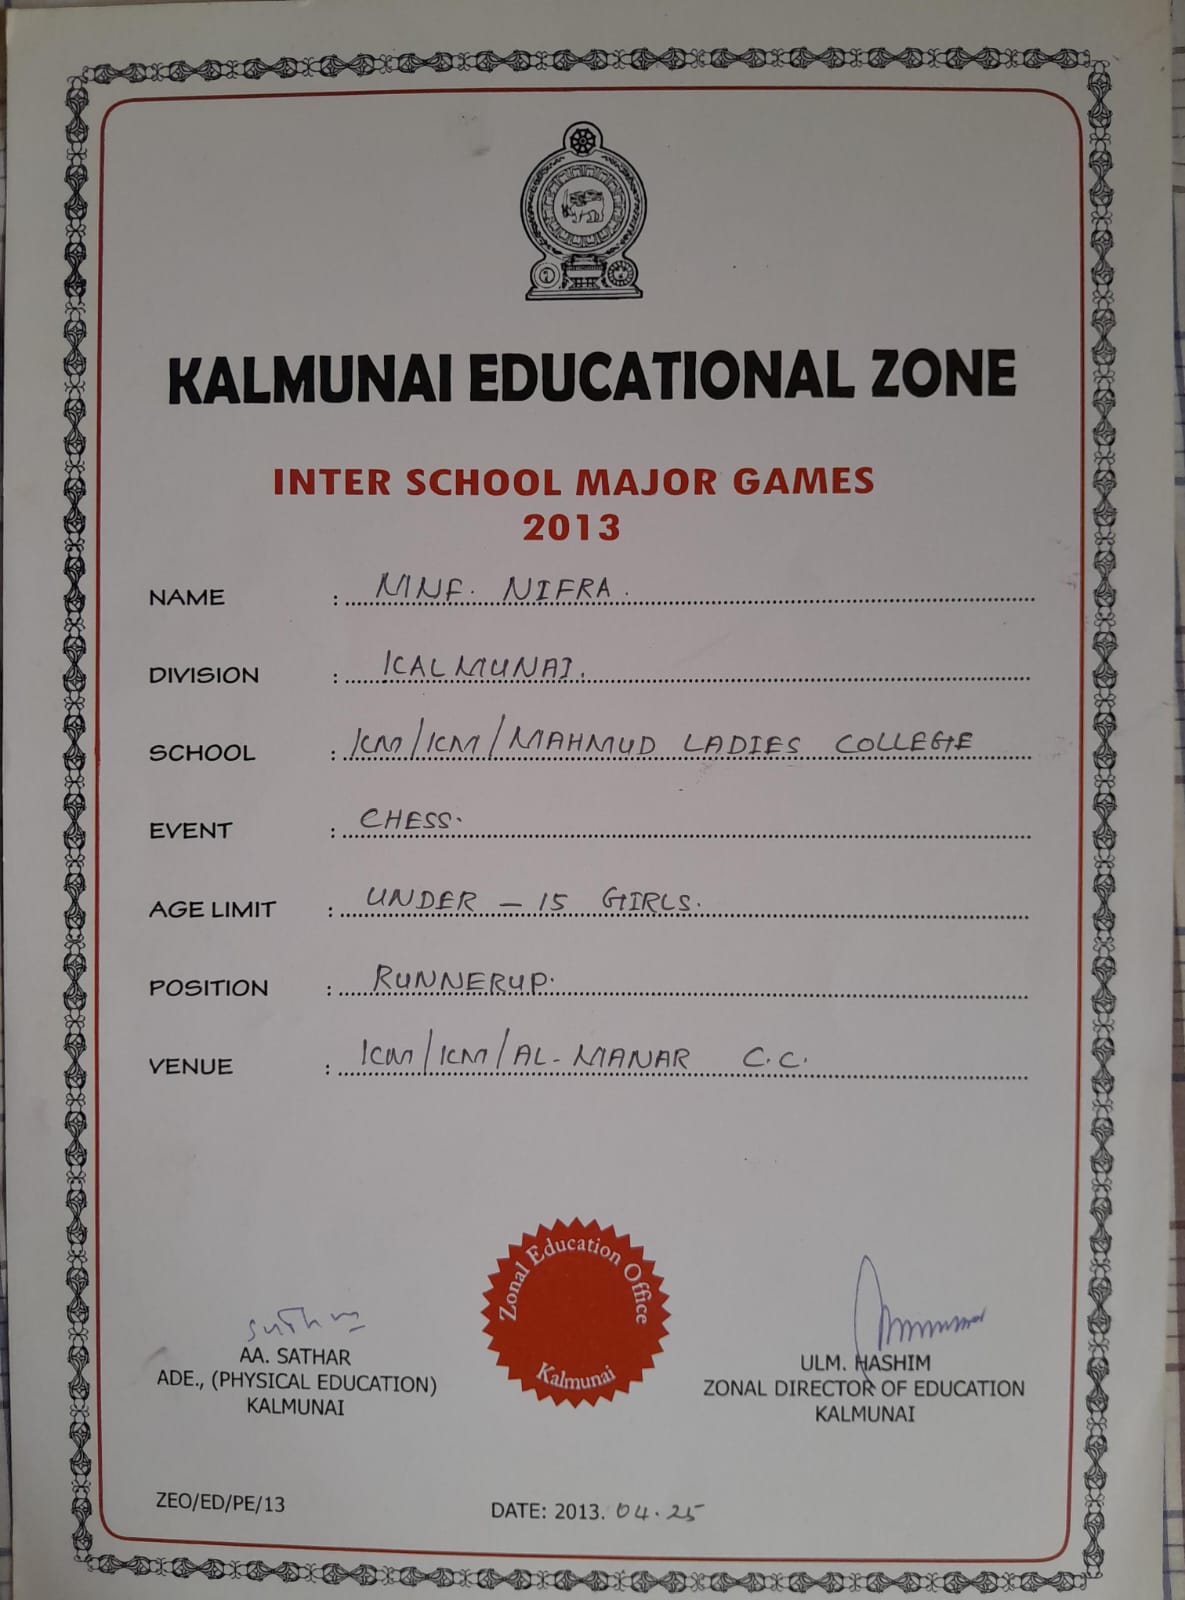 KALMUNAI EDUCATIONAL ZONE
INTER SCHOOL MAJOR GAMES
2013
NAME : MNF. NIFRA.
DIVISION : KALMUNAI.
SCHOOL : KM/KM/MAHMUD LADIES COLLEGE
EVENT : CHESS.
AGE LIMIT : UNDER - 15 GIRLS.
POSITION : RUNNERUP.
VENUE : KM/KM/AL-MANAR C.C.
Zonal Education Office
Kalmunai
AA. SATHAR
ADE., (PHYSICAL EDUCATION)
KALMUNAI
ULM. HASHIM
ZONAL DIRECTOR OF EDUCATION
KALMUNAI
ZEO/ED/PE/13
DATE: 2013. 04.25